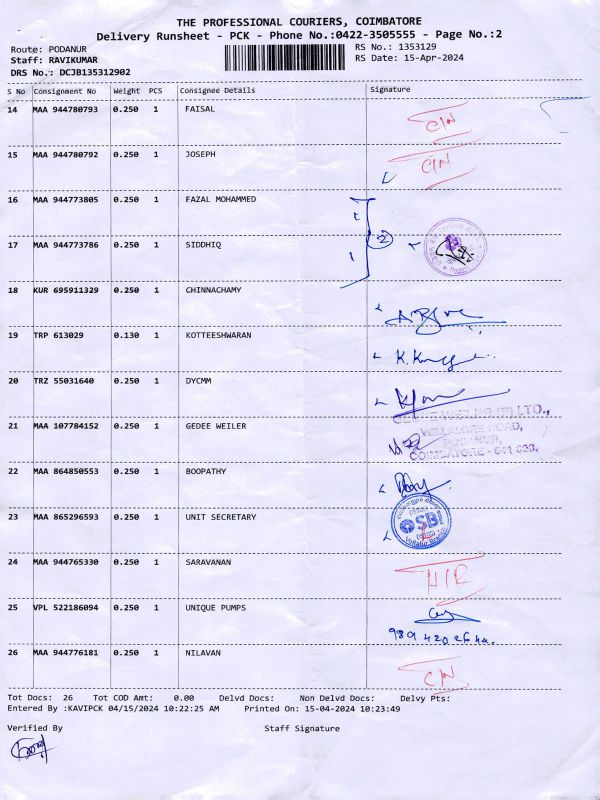 THE PROFESSIONAL COURIERS, COIMBATORE
Delivery Runsheet - PCK - Phone No.:0422-3505555 - Page No.:2
Route: PODANUR
Staff: RAVIKUMAR
DRS No.: DCJB135312902
RS No.: 1353129
RS Date: 15-Apr-2024
S No Consignment No Weight PCS Consignee Details Signature
14 MAA 944780793 0.250 1 FAISAL C/N
15 MAA 944780792 0.250 1 JOSEPH C/N
16 MAA 944773805 0.250 1 FAZAL MOHAMMED
2
17 MAA 944773786 0.250 1 SIDDHIQ
18 KUR 695911329 0.250 1 CHINNACHAMY
19 TRP 613029 0.130 1 KOTTEESHWARAN
20 TRZ 55031640 0.250 1 DYCMM
21 MAA 107784152 0.250 1 GEDEE WEILER
VELLALORE ROAD,
PODANUR,
COIMBATORE - 641 023.
22 MAA 864850553 0.250 1 BOOPATHY
23 MAA 865296593 0.250 1 UNIT SECRETARY
SBI
24 MAA 944765330 0.250 1 SARAVANAN
25 VPL 522186094 0.250 1 UNIQUE PUMPS
26 MAA 944776181 0.250 1 NILAVAN C/N
Tot Docs: 26 Tot COD Amt: 0.00 Delvd Docs: Non Delvd Docs: Delvy Pts:
Entered By :KAVIPCK 04/15/2024 10:22:25 AM Printed On: 15-04-2024 10:23:49
Verified By Staff Signature